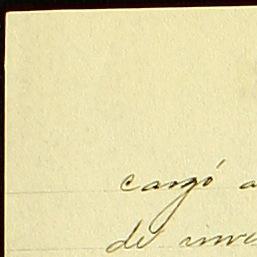 cargó a
de inve